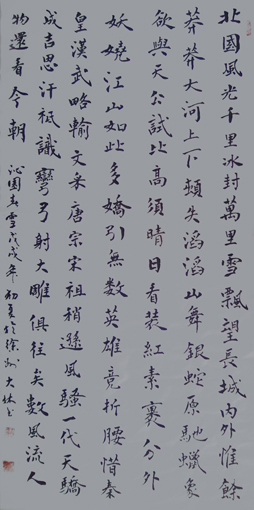 北國風光千里冰封萬里雪飄望長城內外惟餘
莽莽大河上下頓失滔滔山舞銀蛇原馳蠟象
欲與天公試比高須晴日看裝紅素裹分外
妖嬈江山如此多嬌引無數英雄竟折腰惜秦
皇漢武略輸文采唐宗宋祖稍遜風騷一代天驕
成吉思汗祗識彎弓射大雕俱往矣數風流人
物還看今朝
沁園春雪戊戌年初夏於徐州大林書